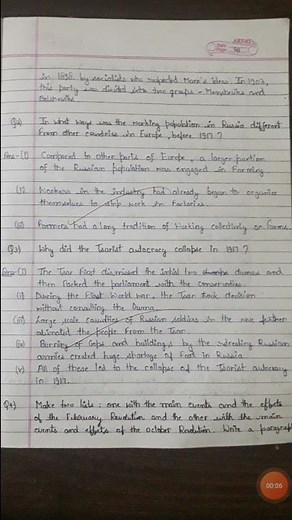 in 1898 by socialists who respected Marx's ideas. In 1903,
this party was divided into two groups - Mensheviks and
Bolsheviks
Q2) In what ways was the working population in Russia different
from other countries in Europe, before 1917?
Ans-(i) Compared to other parts of Europe, a larger portion
of the Russian population was engaged in Farming
(ii) Workers in the industry had already began to organize
themselves to stop work in factories.
(iii) Farmers had a long tradition of working collectively on farms.
Q3) Why did the Tsarist autocracy collapse in 1917?
Ans-(i) The Tsar first dismissed the initial two dumas and
then Packed the parliament with the conservatives.
(ii) During the First World War, the Tsar took decision
without consulting the Duma.
(iii) Large scale casualties of Russian soldiers in the war further
alienated the people from the Tsar.
(iv) Burning of Cops and buildings by the retreating Russian
armies created huge shortage of food in Russia
(v) All of these led to the collapse of the Tsarist autocracy
in 1917.
Q4) Make two lists: one with the main events and the effects
of the February Revolution and the other with the main
events and effects of the October Revolution. Write a paragraph
00:06